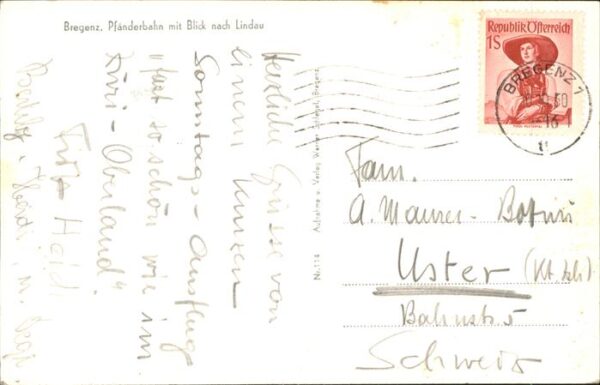 Bregenz, Pfänderbahn mit Blick nach Lindau
Herzliche Grüsse von
einem kurzen
Sonntags-Ausflug
"fast so schön wie im
Züri-Oberland"
Fritz Held
Heidi u.
Aufnahme u. Verlag Werner Schlegel, Bregenz
Nr. 114
Republik Österreich
1S
BREGENZ 1
60
16
Fam.
A. Maurer-
Uster (Kt. Zch)
Bahnstr. 5
Schweiz